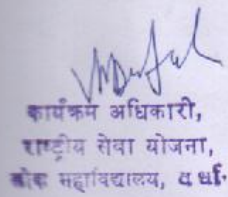 कार्यक्रम अधिकारी,
राष्ट्रीय सेवा योजना,
महाविद्यालय, वर्धा.